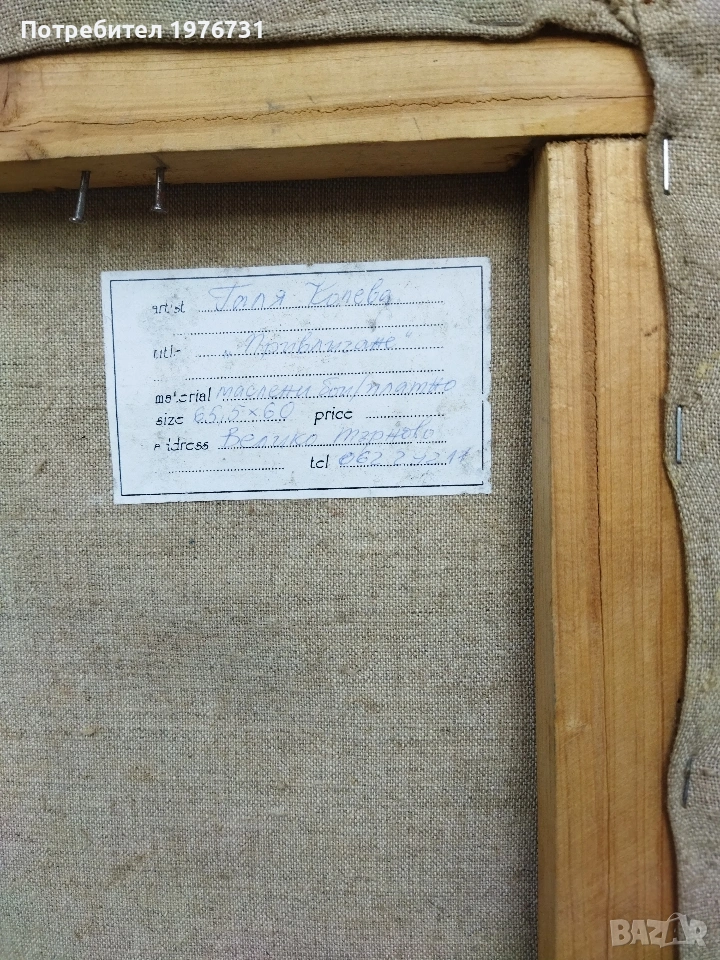 Потребител 1976731
artist Галя Колева
title „Привличане“
material маслени бои/платно
size 65,5×60 price
address Велико Търново
tel 062
BAZAR